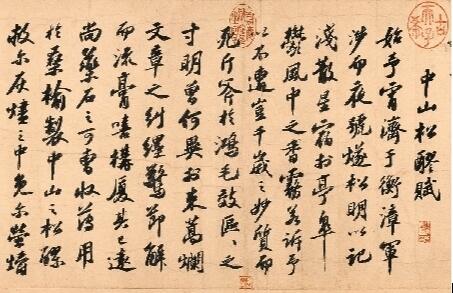 中山松醪賦
始予宵濟于衡漳軍
涉而夜號燧松明以記
淺散星宿於亭皋
鬱風中之香霧若訴予
以不遭豈千歲之妙質而
死斤斧於鴻毛效區區之
寸明曾何異於束蒿爛
文章之糾纏驚節解
而流膏嘻構廈其已遠
尚藥石之可曹收薄用
於桑榆製中山之松醪
救尔灰燼之中免尔螢爝